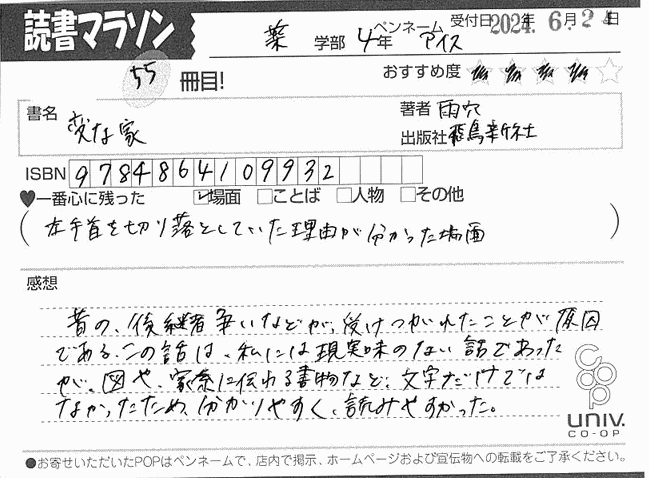 読書マラソン
薬 学部 4年 ペンネーム アイス 受付日 2024年 6月 2 日
55 冊目! おすすめ度 ★★★★☆
書名 変な家 著者 雨穴
出版社 飛鳥新社
ISBN 9784864109932
♥一番心に残った ☑場面 □ことば □人物 □その他
(左手首を切り落としていた理由が分かった場面)
感想
昔の、後継者争いなどが、受けつがれたことが原因
である、この話は、私には現実味のない話であった
が、図や、家系に伝わる書物など、文字だけでは
なかったため、分かりやすく、読みやすかった。
coop
univ.
CO-OP
●お寄せいただいたPOPはペンネームで、店内で掲示、ホームページおよび宣伝物への転載をご了承ください。